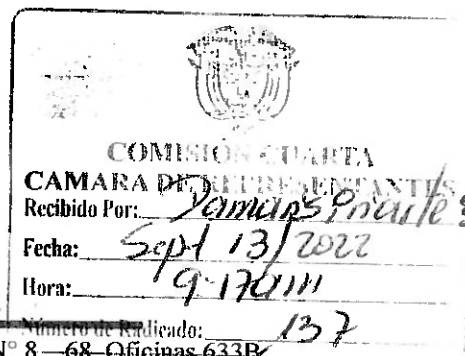 COMISIÓN CUARTA
CAMARA DE REPRESENTANTES
Recibido Por:
Fecha: Sept 13/2022
Hora: 9:17am
Número de Radicado: 137
N° 8 —68 Oficinas 633B